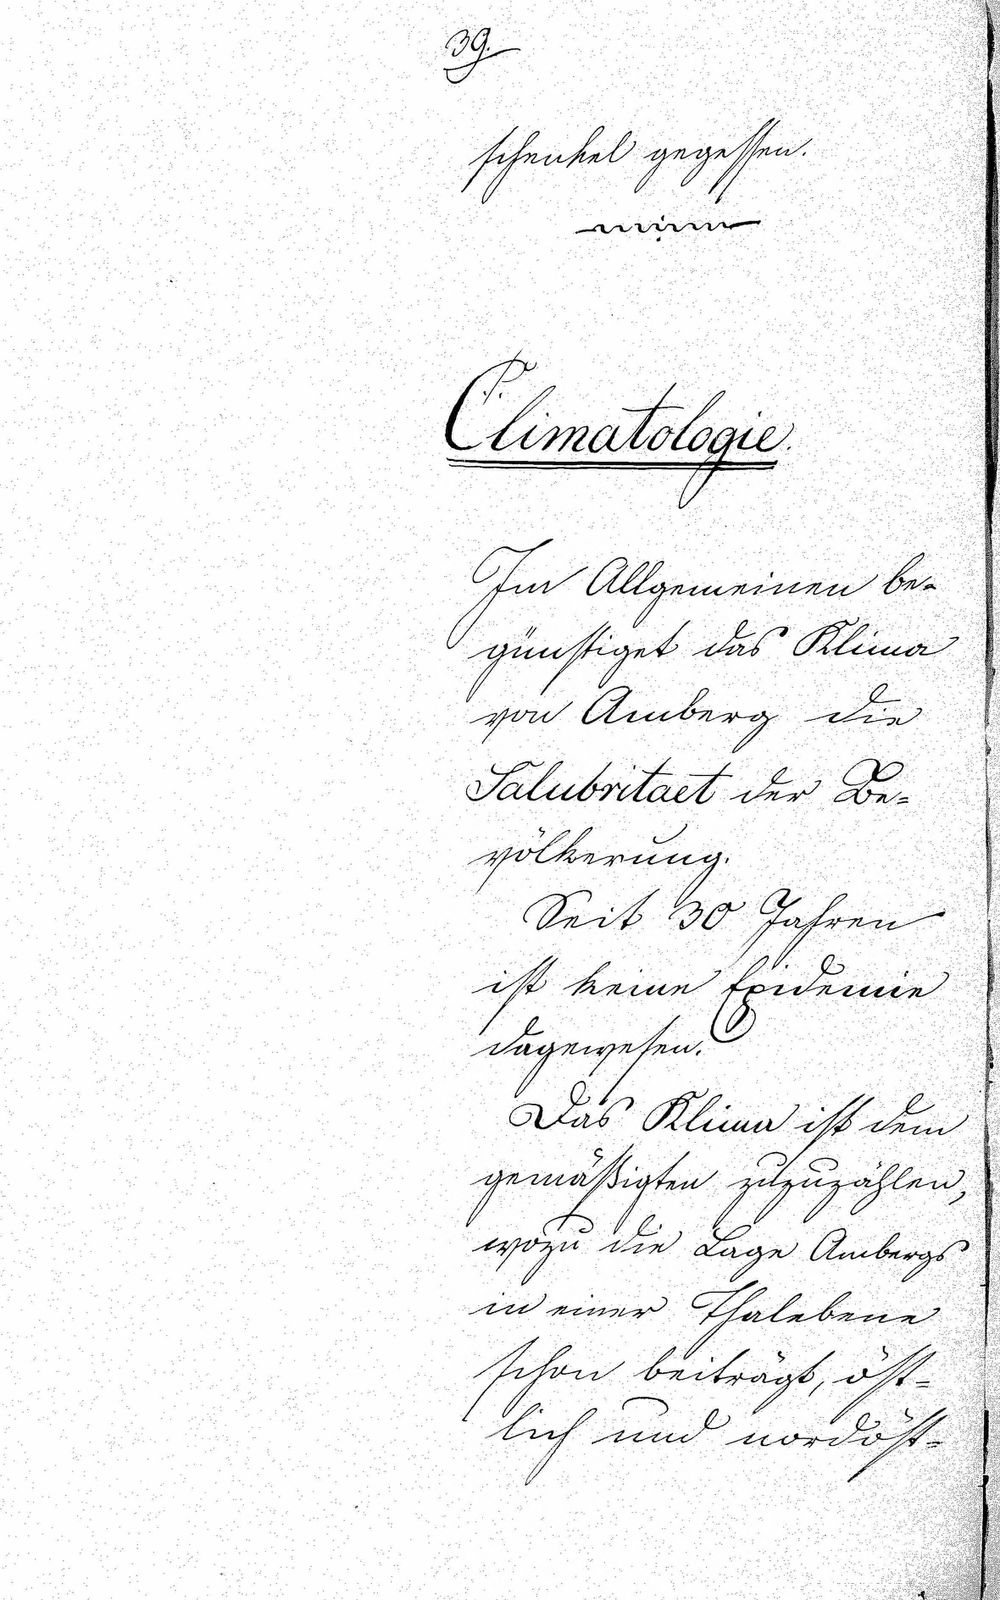 39.
schenkel gegessen.
Climatologie.
Im Allgemeinen be-
günstiget das Klima
von Amberg die
Salubritaet der Be-
völkerung.
Seit 30 Jahren
ist keine Epidemie
dagewesen.
Das Klima ist dem
gemäßigten zuzuzählen,
wozu die Lage Ambergs
in einer Thalebene
schon beiträgt, öst-
lich und nordöst-